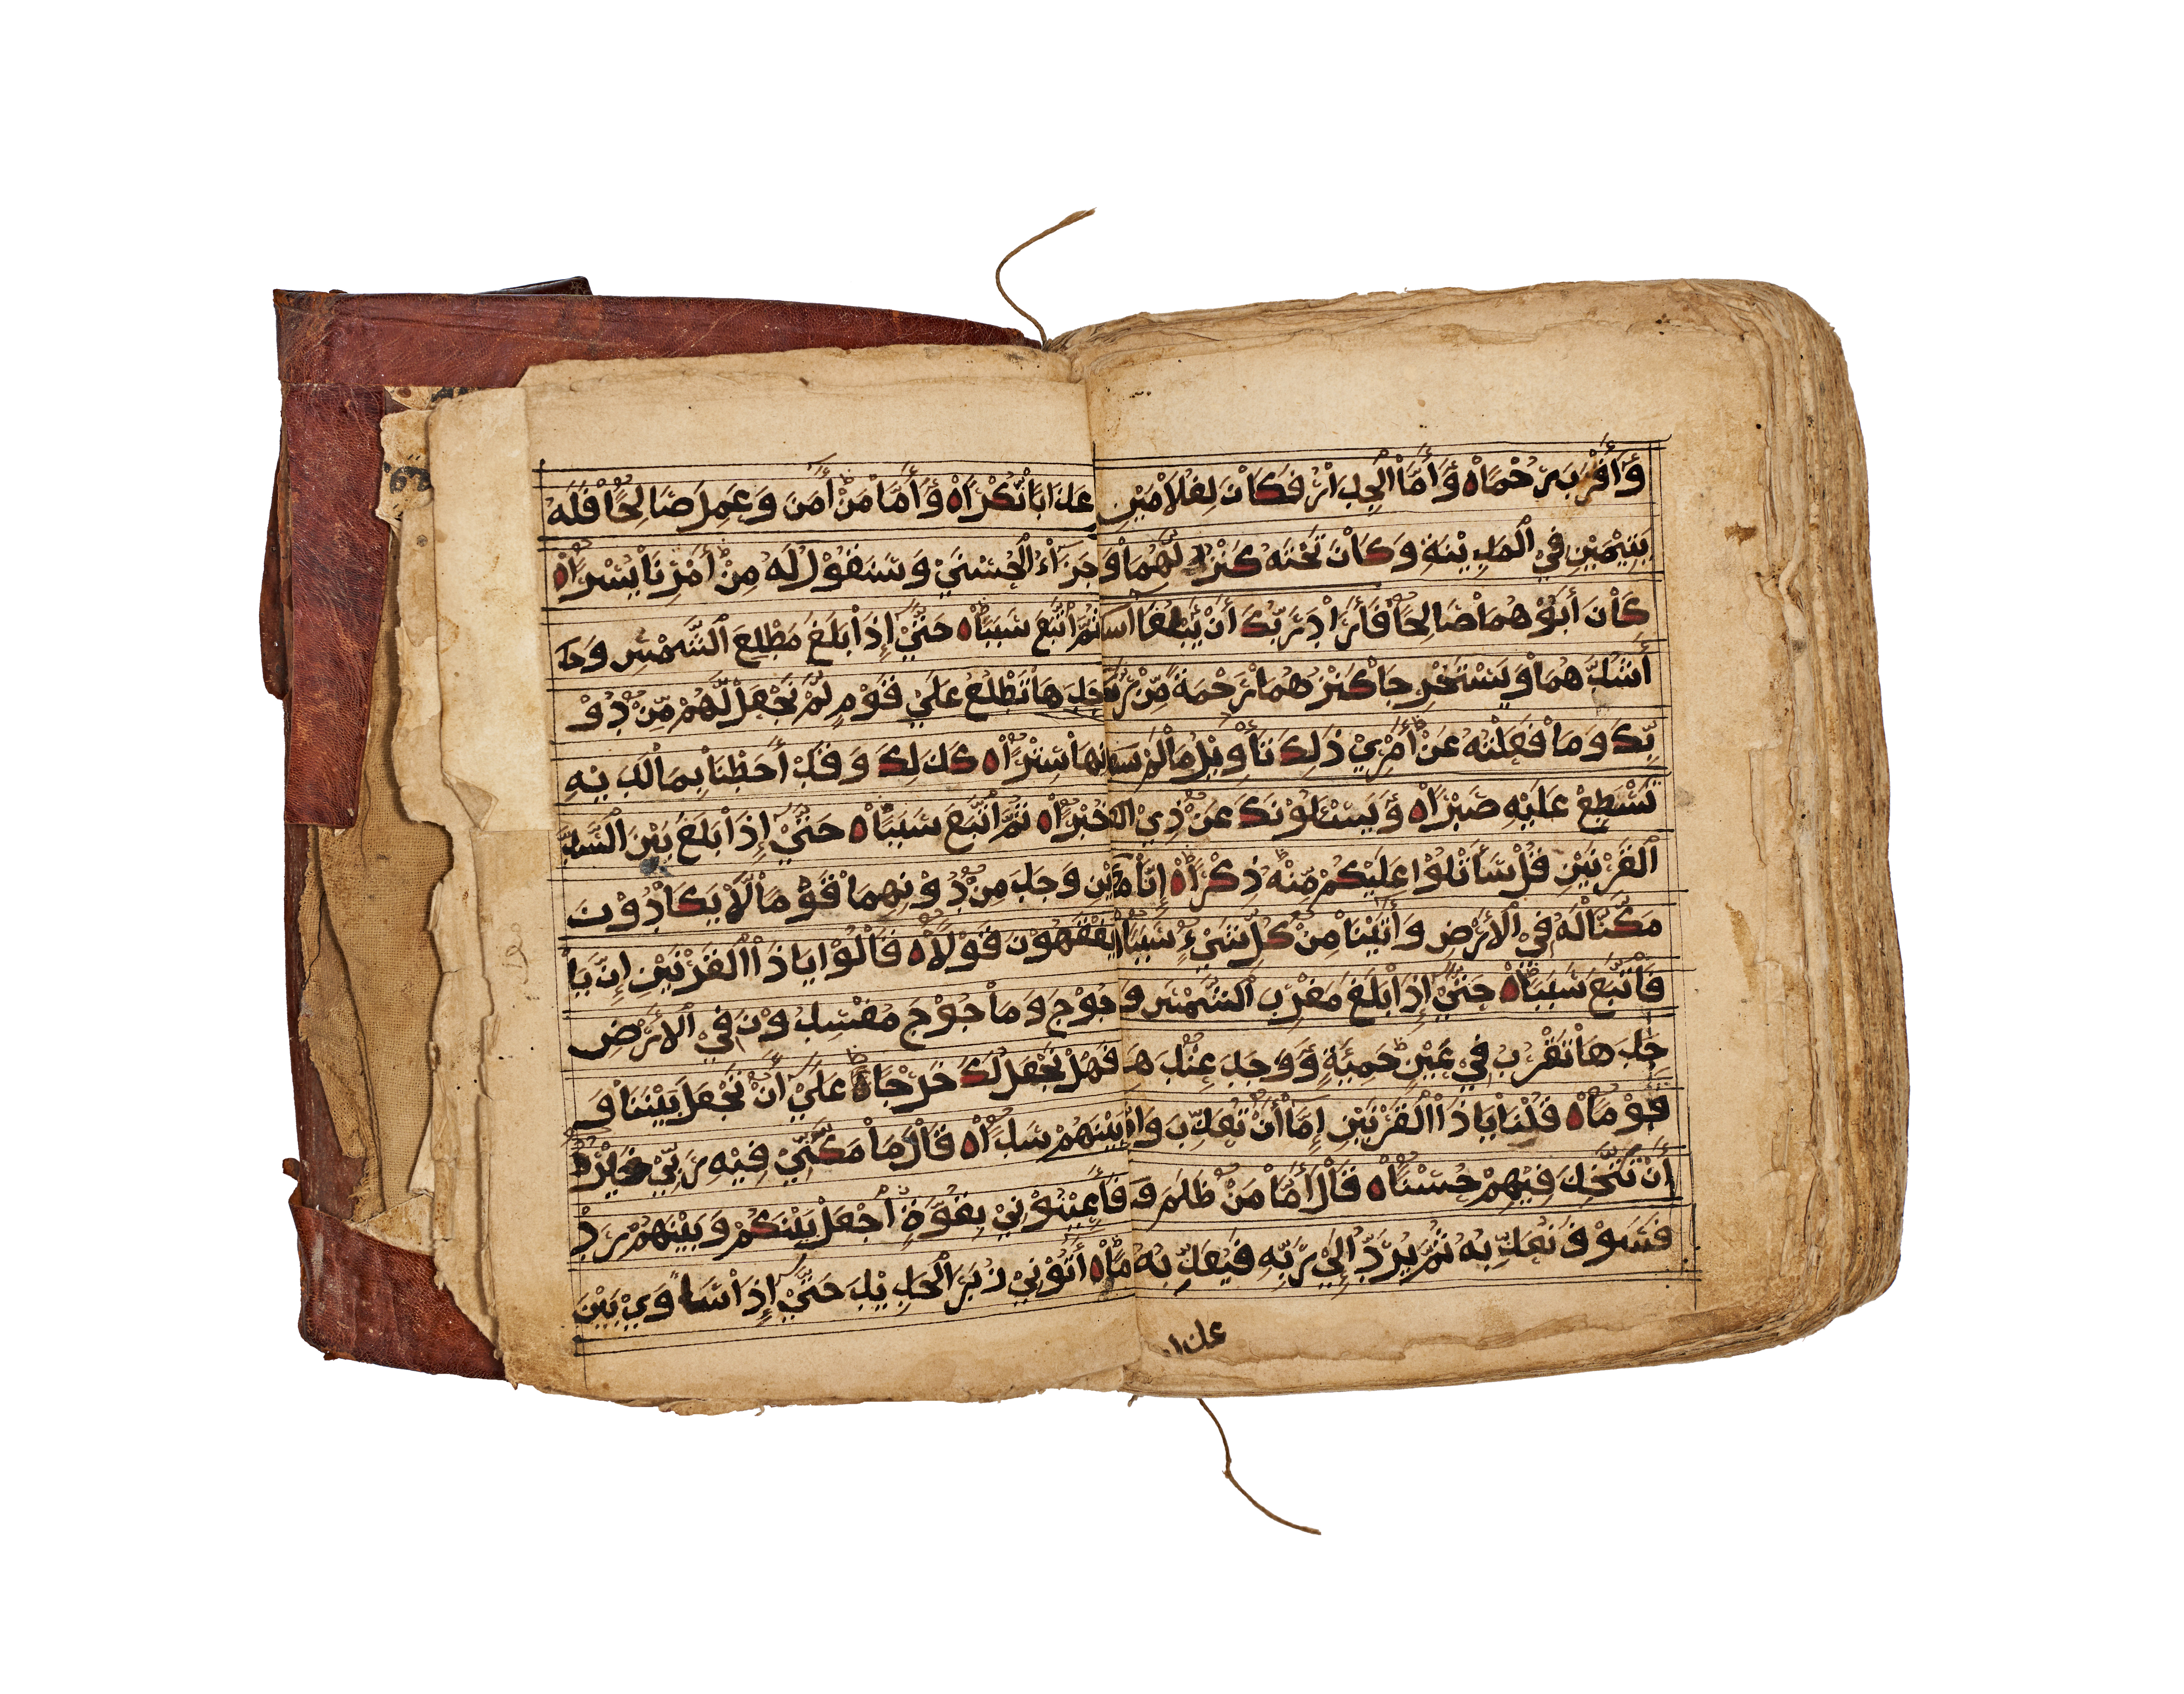 وَأَقْرَبَ رُحْمًا ه وَأَمَّا الْجِدَارُ فَكَانَ لِغُلَامَيْنِ
يَتِيمَيْنِ فِي الْمَدِيْنَةِ وَكَانَ تَحْتَهُ كَنْزٌ لَّهُمَا وَ
كَانَ أَبُوْهُمَا صَالِحًا فَأَرَادَ رَبُّكَ أَنْ يَّبْلُغَا
أَشُدَّهُمَا وَيَسْتَخْرِجَا كَنْزَهُمَا رَحْمَةً مِّنْ رَّ
بِّكَ وَمَا فَعَلْتُهُ عَنْ أَمْرِيْ ذٰلِكَ تَأْوِيْلُ مَا لَمْ
تَسْطِعْ عَلَيْهِ صَبْرًا ه وَيَسْئَلُوْنَكَ عَنْ ذِي
الْقَرْنَيْنِ قُلْ سَأَتْلُوْا عَلَيْكُمْ مِّنْهُ ذِكْرًا ه إِنَّا
مَكَّنَّا لَهُ فِي الْأَرْضِ وَأٰتَيْنَا مِنْ كُلِّ شَيْءٍ سَبَبًا
فَأَتْبَعَ سَبَبًا ه حَتَّىٰ إِذَا بَلَغَ مَغْرِبَ الشَّمْسِ وَ
جَدَهَا تَغْرُبُ فِي عَيْنٍ حَمِئَةٍ وَّوَجَدَ عِنْدَهَا
قَوْمًا ه قُلْنَا يَا ذَا الْقَرْنَيْنِ إِمَّا أَنْ تُعَذِّبَ وَإِمَّا
أَنْ تَتَّخِذَ فِيْهِمْ حُسْنًا ه قَالَ أَمَّا مَنْ ظَلَمَ فَ
فَسَوْفَ نُعَذِّبُهُ ثُمَّ يُرَدُّ إِلَىٰ رَبِّهِ فَيُعَذِّبُهُ
عذابا
عَذَابًا نُّكْرًا ه وَأَمَّا مَنْ أٰمَنَ وَعَمِلَ صَالِحًا فَلَهُ
جَزَاءُ الْحُسْنَىٰ وَسَنَقُوْلُ لَهُ مِنْ أَمْرِنَا يُسْرًا ه
ثُمَّ أَتْبَعَ سَبَبًا ه حَتَّىٰ إِذَا بَلَغَ مَطْلِعَ الشَّمْسِ وَ
جَدَهَا تَطْلُعُ عَلَىٰ قَوْمٍ لَّمْ نَجْعَلْ لَّهُمْ مِّنْ دُوْ
نِهَا سِتْرًا ه كَذٰلِكَ وَقَدْ أَحَطْنَا بِمَا لَدَيْهِ
خُبْرًا ه ثُمَّ أَتْبَعَ سَبَبًا ه حَتَّىٰ إِذَا بَلَغَ بَيْنَ السَّدَّ
يْنِ وَجَدَ مِنْ دُوْنِهِمَا قَوْمًا لَّا يَكَادُوْنَ
يَفْقَهُوْنَ قَوْلًا ه قَالُوْا يَا ذَا الْقَرْنَيْنِ إِنَّ يَأْ
جُوْجَ وَمَأْجُوْجَ مُفْسِدُوْنَ فِي الْأَرْضِ
فَهَلْ نَجْعَلُ لَكَ خَرْجًا عَلَىٰ أَنْ تَجْعَلَ بَيْنَنَا وَ
بَيْنَهُمْ سَدًّا ه قَالَ مَا مَكَّنِّيْ فِيْهِ رَبِّيْ خَيْرٌ
فَأَعِيْنُوْنِيْ بِقُوَّةٍ أَجْعَلْ بَيْنَكُمْ وَبَيْنَهُمْ رَدْ
مًا ه أٰتُوْنِيْ زُبَرَ الْحَدِيْدِ حَتَّىٰ إِذَا سَاوَىٰ بَيْنَ